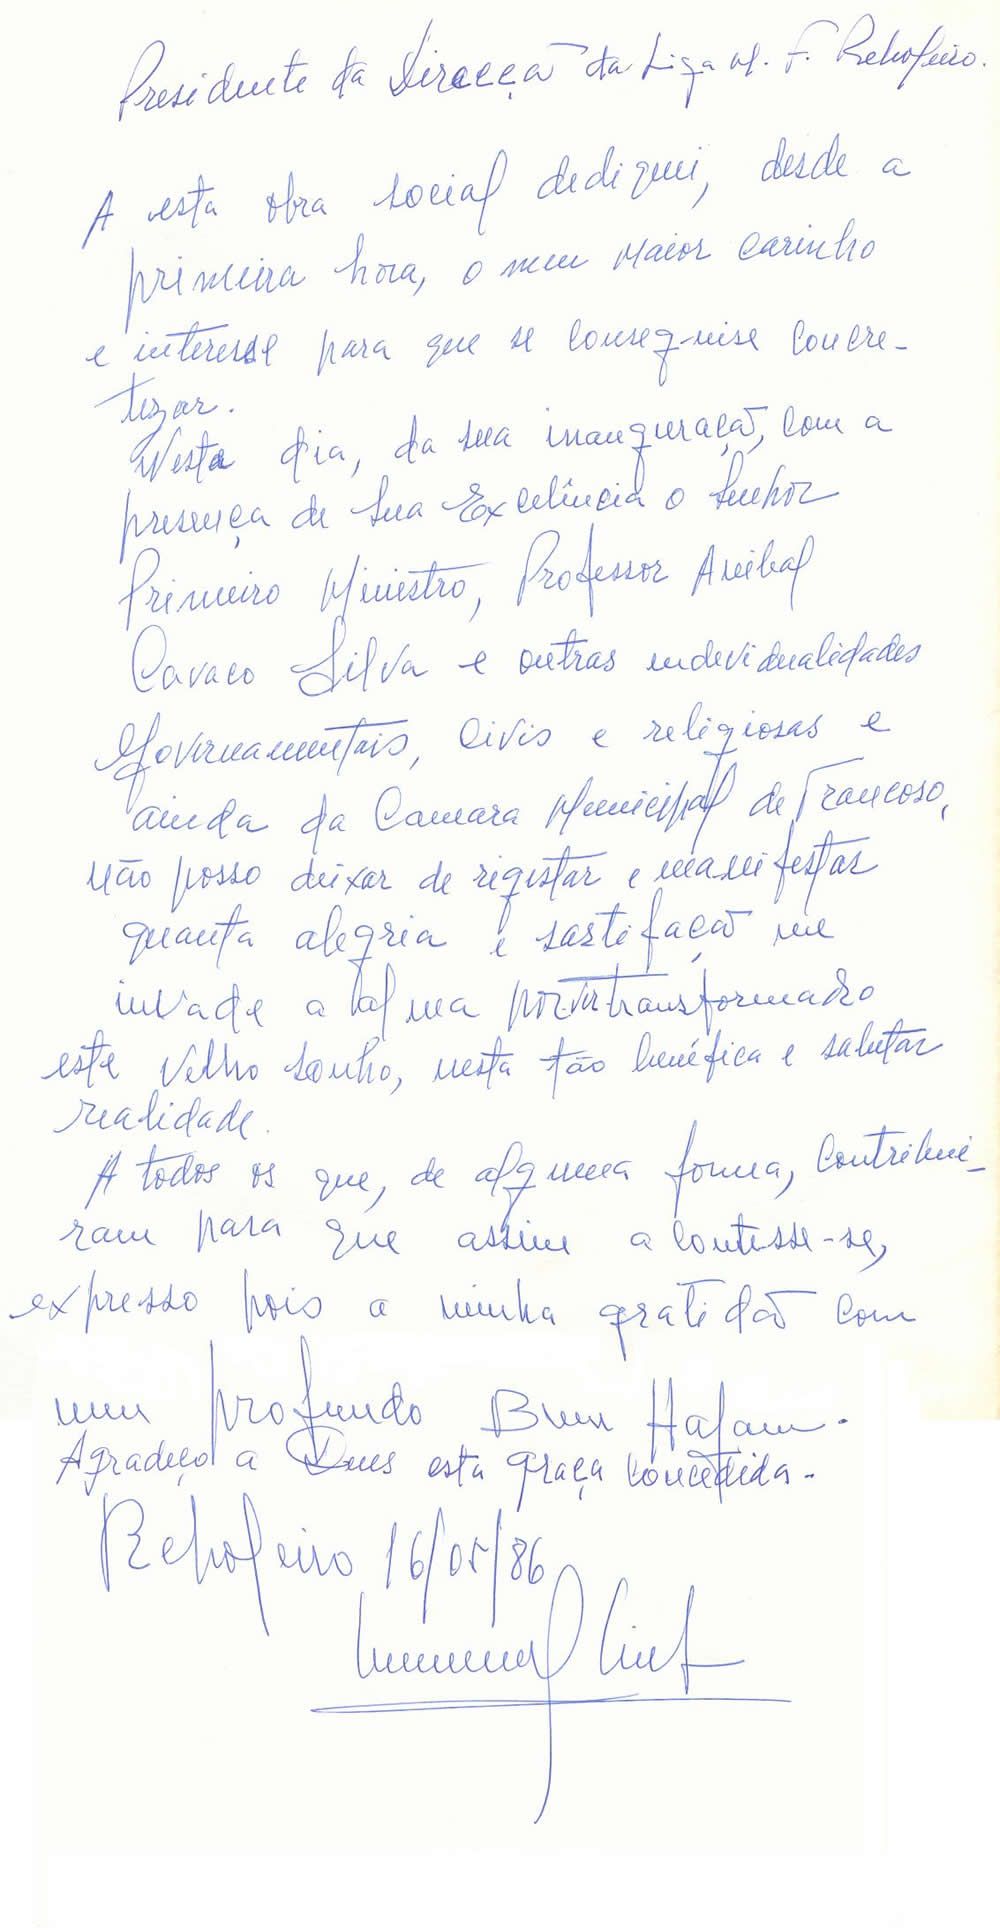 Presidente da Direcçã da Liga M. F. Reboleiro.
A esta obra social dediquei, desde a
primeira hora, o meu maior carinho
e interesse para que se conseguise concre-
tizar.
Nesta dia, da sua inauguraçã, com a
presença de Sua Excelência o Senhor
Primeiro Ministro, Professor Anibal
Cavaco Silva e outras individualidades
Governamentais, civis e religiosas e
ainda da Camara Municipal de Trancoso,
não posso deixar de registar e manifestar
quanta alegria e sastifaçã me
invade a alma por ver transformado
este velho sonho, nesta tão benéfica e salutar
realidade.
A todos os que, de alguma forma, contribui-
ram para que assim acontesse-se,
expresso pois a minha gratidã com
um profundo Bem Hajam.
Agradeço a Deus esta graça concedida.
Reboleiro 16/05/86